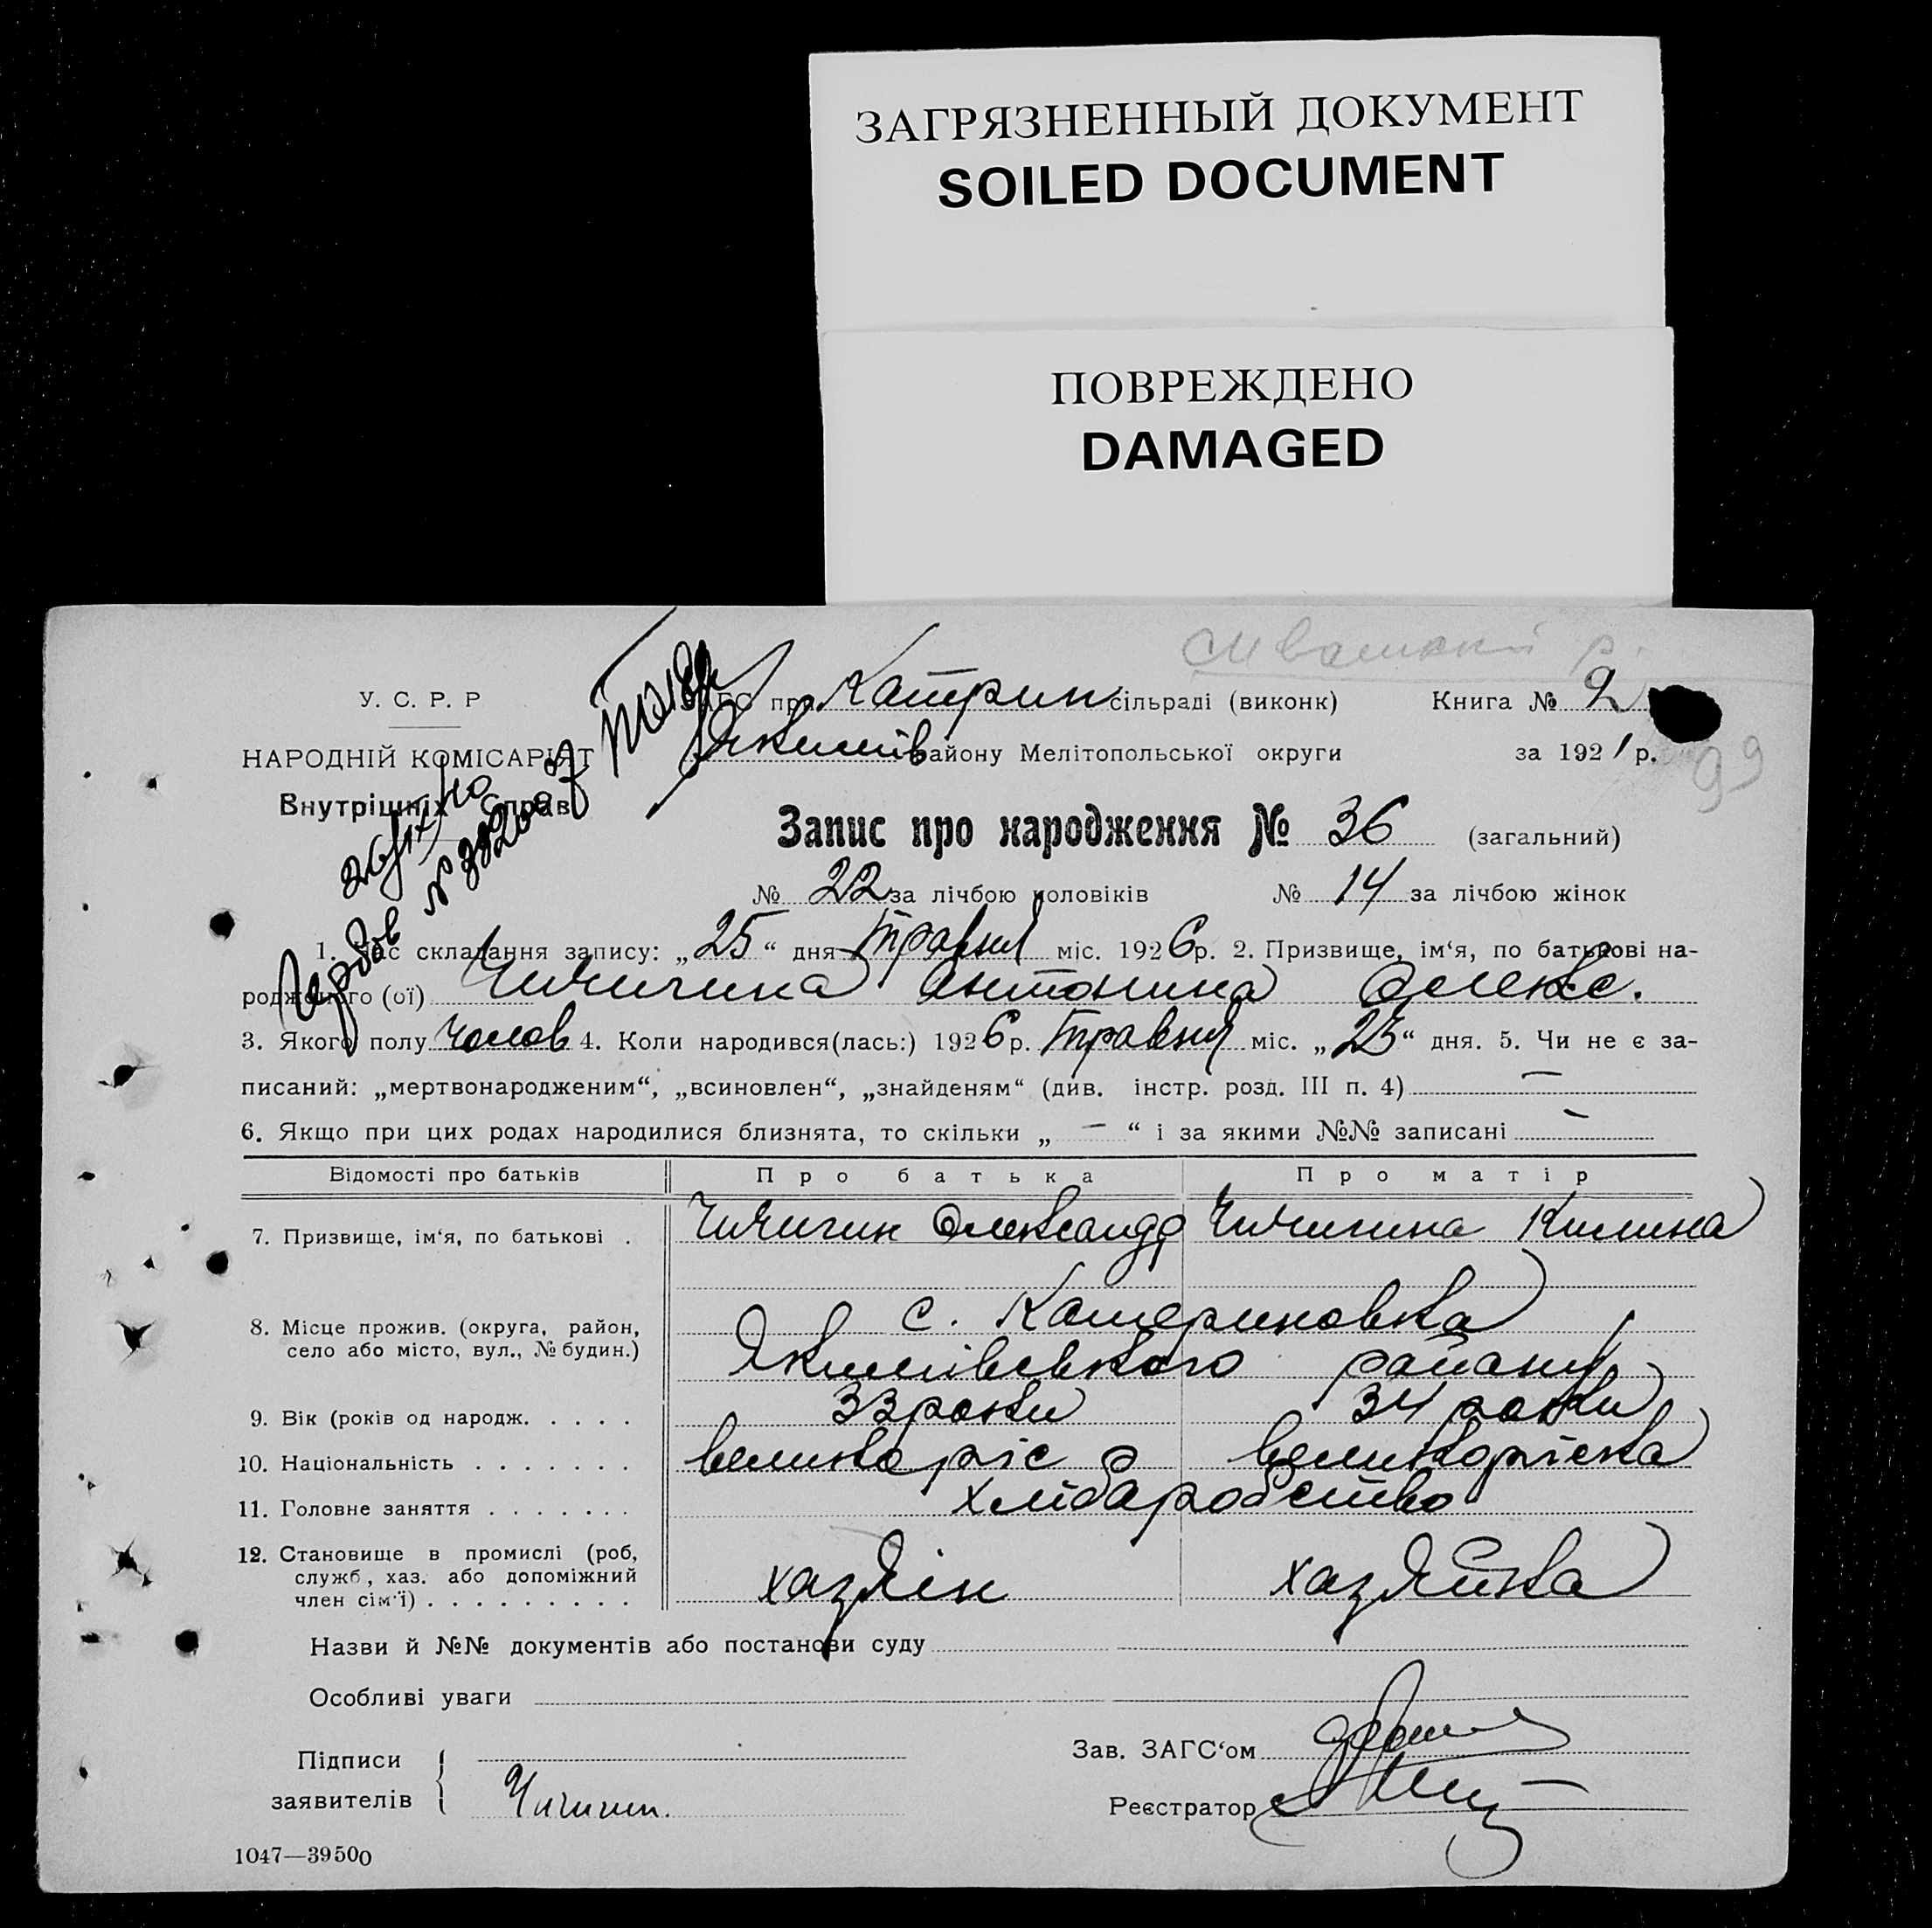 ЗАГРЯЗНЕННЫЙ ДОКУМЕНТ
SOILED DOCUMENT
ПОВРЕЖДЕНО
DAMAGED
У. С. Р. Р
НАРОДНІЙ КОМІСАРІЯТ
Внутрішніх Справ
при Катрин сільраді (виконк) Книга № 2
Якимів району Мелітопольської округи за 192 р.
99
Запис про народження № 36 (загальний)
№ 22 за лічбою чоловіків № 14 за лічбою жінок
1. Час складання запису: „25“ дня Травня міс. 1926 р. 2. Призвище, ім‘я, по батькові на-
родженого (ої) Чичигина Антонина Олекс.
3. Якого полу чолов 4. Коли народився(лась:) 1926 р. Травня міс. „23“ дня. 5. Чи не є за-
писаний: „мертвонародженим“, „всиновлен“, „знайденям“ (див. інстр. розд. III п. 4) —
6. Якщо при цих родах народилися близнята, то скільки „ — “ і за якими №№ записані —
Відомості про батьків Про батька Про матір
7. Призвище, ім‘я, по батькові . Чичигин Олександр Чичигина Килина
8. Місце прожив. (округа, район, с. Катериновка
село або місто, вул., № будин.) Якимівського району
9. Вік (років од народж. . . . . 33 роки 34 роки
10. Національність . . . . . . . великоріс великоріска
11. Головне заняття . . . . . . . хлібаробство
12. Становище в промислі (роб,
служб, хаз. або допоміжний хазяін хазяйка
член сім‘ї) . . . . . . . . .
Назви й №№ документів або постанови суду
Особливі уваги
Підписи Зав. ЗАГС‘ом
заявителів Чичигин. Реєстратор
1047—39500